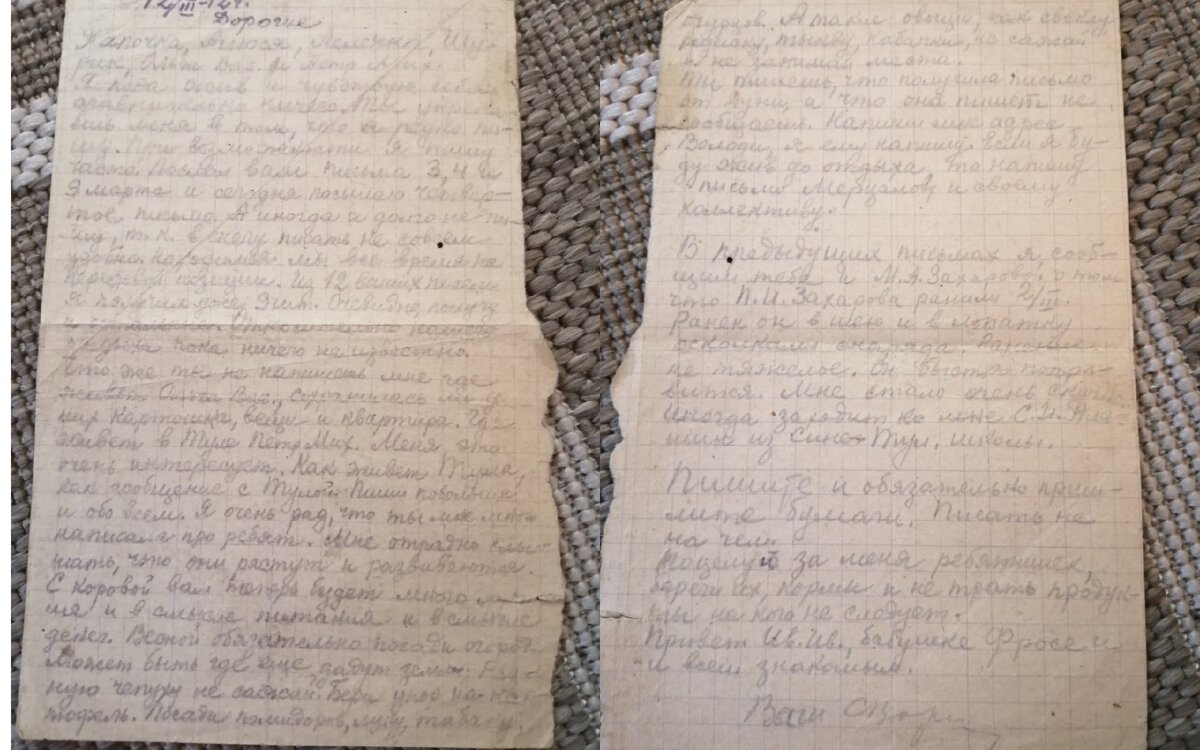 12/III-42г.
Дорогие
Ляпочка, Люся, Леленька, Шу-
рик, Ольга Вас. и Петр Мих.
Я пока жив и чувствую себя
сравнительно ничего. Ты упрек-
меня в том, что я редко пи-
шу. При возможности я пишу
часто. Послал вам письма 3, 4 и
9 марта и сегодня посылаю четвер-
тое письмо. А иногда и долго не пи-
шу, т.к. в снегу писать не совсем
удобно, находимся мы все время на
передовой позиции. Из 12 ваших писем
я получил уже 9 шт. Очевидно, получу
и остальные. Относительно
пока ничего не известно.
Что же ты не напишешь мне где
живет Ольга Вас., сохранилась ли у
них картошка, вещи и квартира. Где
живет в Туле Петр Мих. Меня это
очень интересует. Как живет Тула,
как сообщение с Тулой. Пиши побольше
и обо всем. Я очень рад, что ты мне много
написала про ребят. Мне отрадно слы-
шать, что они растут и развиваются.
С коровой вам теперь будет много
и в смысле питания и в смысле
денег. Весной обязательно посади огород.
Может быть где еще дадут земли. Раз-
ную чепуху не сажай. Бери упор на кар-
тофель. Посади помидоров, луку, табаку,
огурцов. А такие овощи, как свеклу,
редиску, тыкву, кабачки, не сажай
и не занимай места.
Ты пишешь, что получила письмо
от Дуни, а что она пишет не
сообщаешь. Напиши мне адрес
Володи, я ему напишу. Если я бу-
ду жив до отдыха, то напишу
письма Мерцалову и своему
коллективу.
В предыдущих письмах я сооб-
щил тебе и М.А. Захаровой о том
что П.И. Захарова ранили 2/III.
Ранен он в шею и в лопатку
осколками снаряда. Ранение
не тяжелое. Он быстро попра-
вится. Мне стало очень скучно
Иногда заходит ко мне С.И.
из Синет Тур. школы.
Пишите и обязательно приш-
лите бумаги. Писать не
на чем.
Поцелуй за меня ребятишек,
береги их, корми и не трать продук-
ты на кого не следует.
Привет Ив.Ив., бабушке Фросе и
и всем знакомым.
Ваш